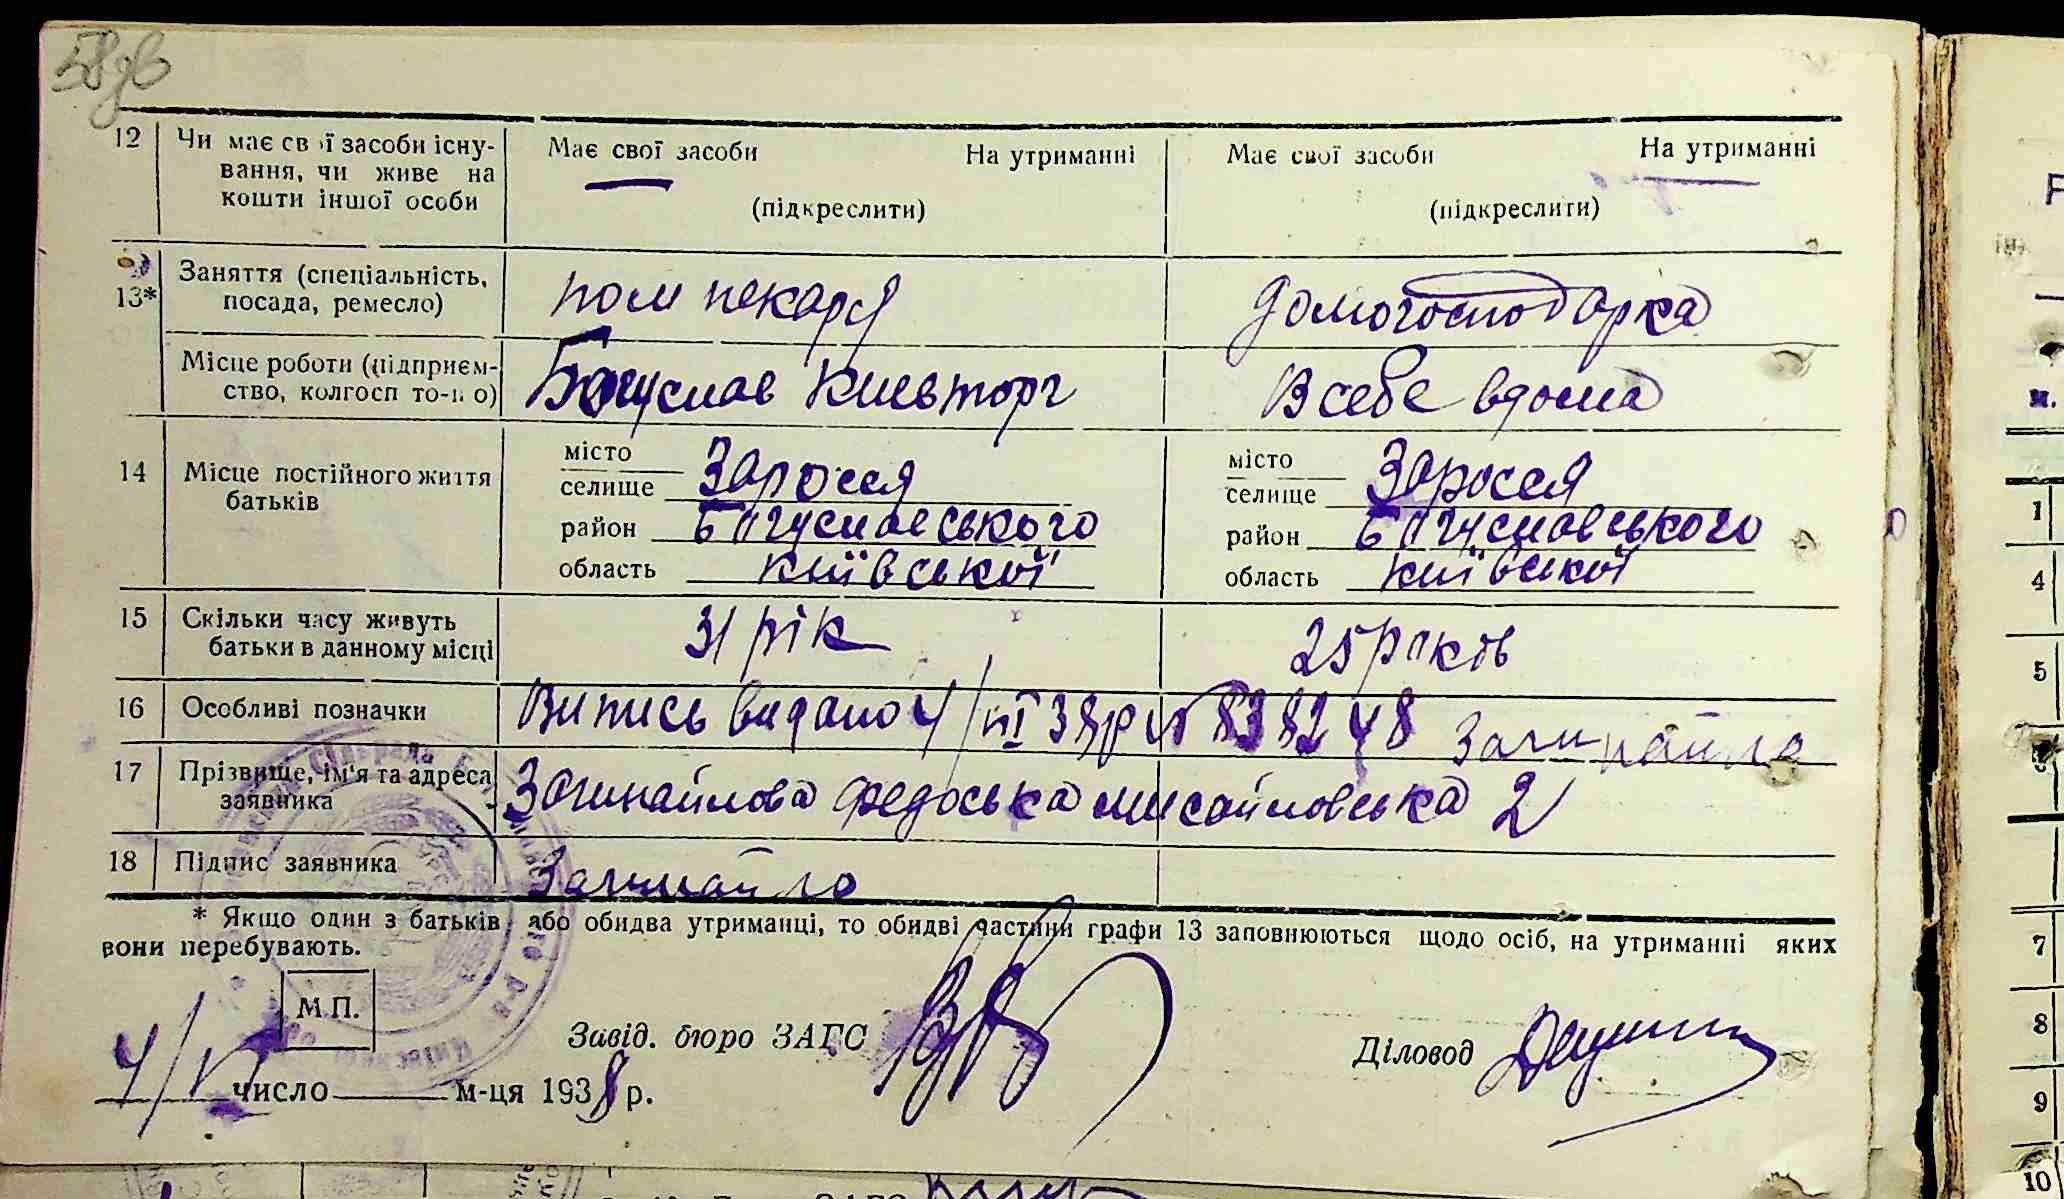 58 зв
12 Чи має свої засоби існу- Має свої засоби На утриманні Має свої засоби На утриманні
вання, чи живе на
кошти іншої особи (підкреслити) (підкреслити)
13* Заняття (спеціальність, пом пекаря домогосподарка
посада, ремесло)
Місце роботи (підприєм- Богуслав Киевторг В себе вдома
ство, колгосп то-що)
14 Місце постійного життя місто місто
батьків селище Заросся селище Заросся
район Богуславського район Богуславського
область Київської область Київської
15 Скільки часу живуть 31 рік 25 років
батьки в данному місці
16 Особливі позначки Випись видано 4/VI 38р № 838248 Загинайло
17 Прізвище, ім'я та адреса Загинайлова Федоська Мисайловська 2
заявника
18 Підпис заявника Загинайло
* Якщо один з батьків або обидва утриманці, то обидві частини графи 13 заповнюються щодо осіб, на утриманні яких
вони перебувають.
М.П.
Завід. бюро ЗАГС
Діловод
4/VI число м-ця 1938 р.
1
4
5
7
8
9
10